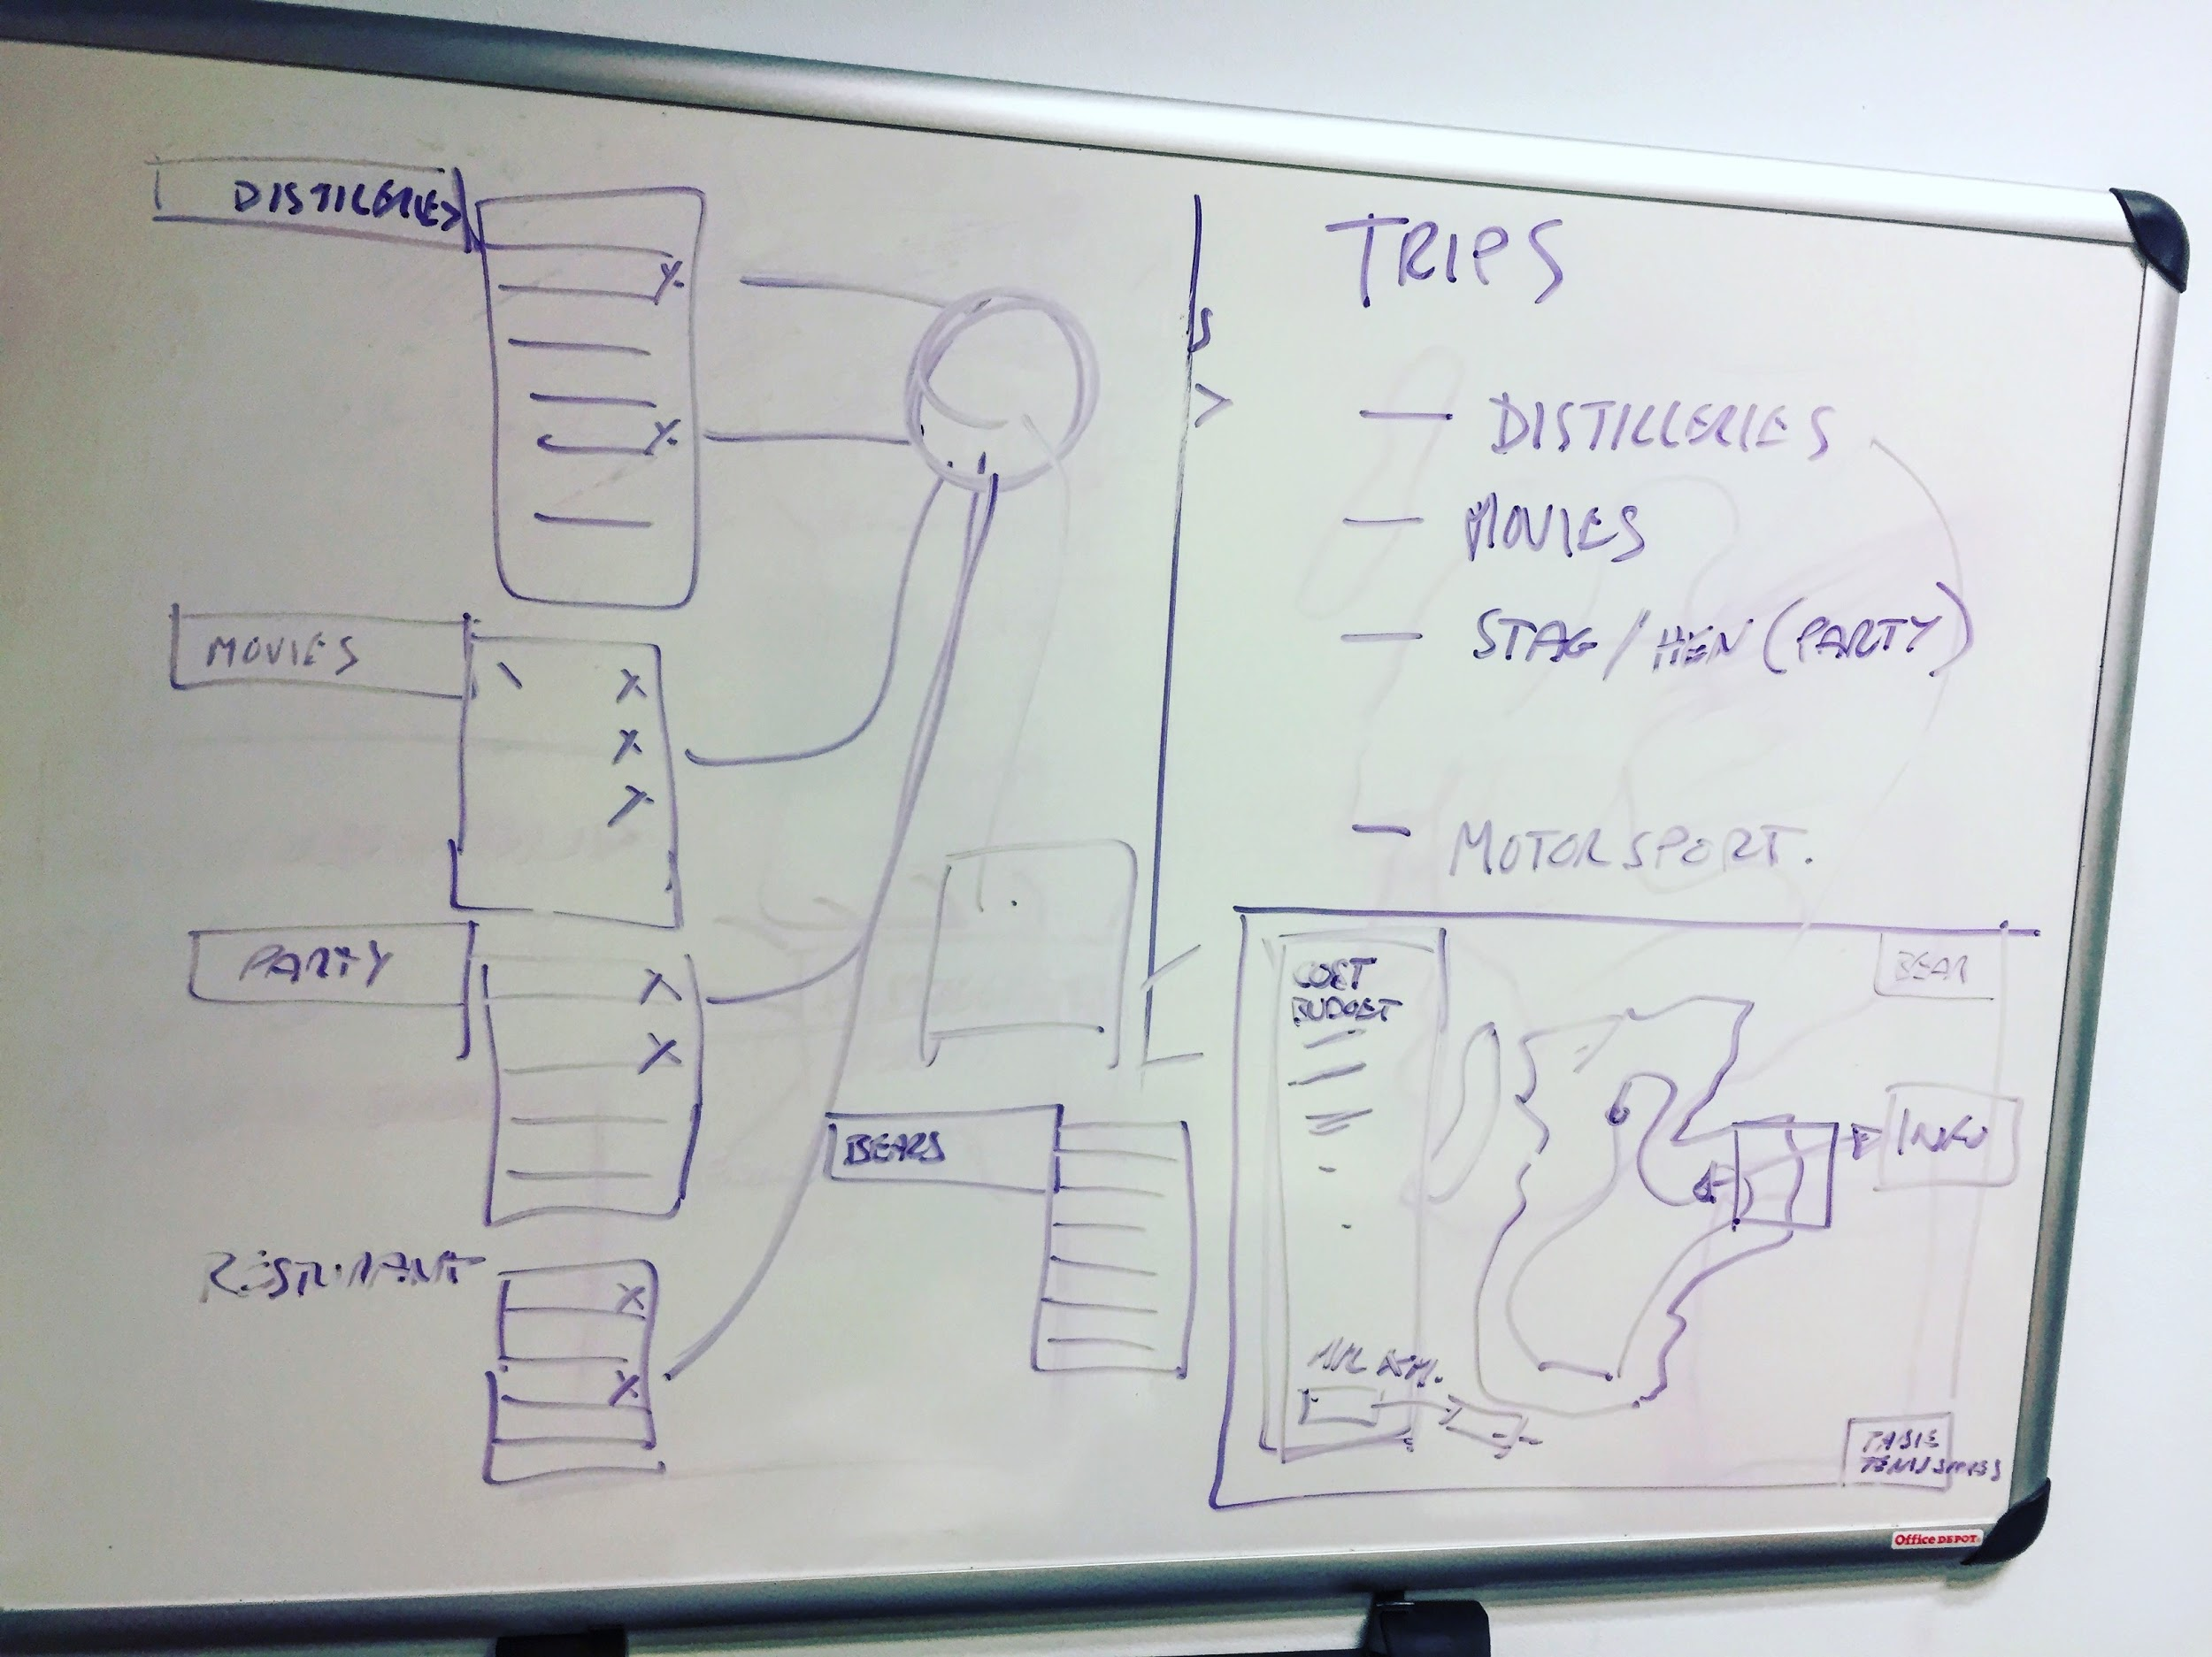 DISTILLERIES
MOVIES
PARTY
BEARS
TRIPS
— DISTILLERIES
— MOVIES
— STAG / HEN (PARTY)
— MOTORSPORT.
COST
BUDGET
BEAR
INFO
TABLE
Office DEPOT